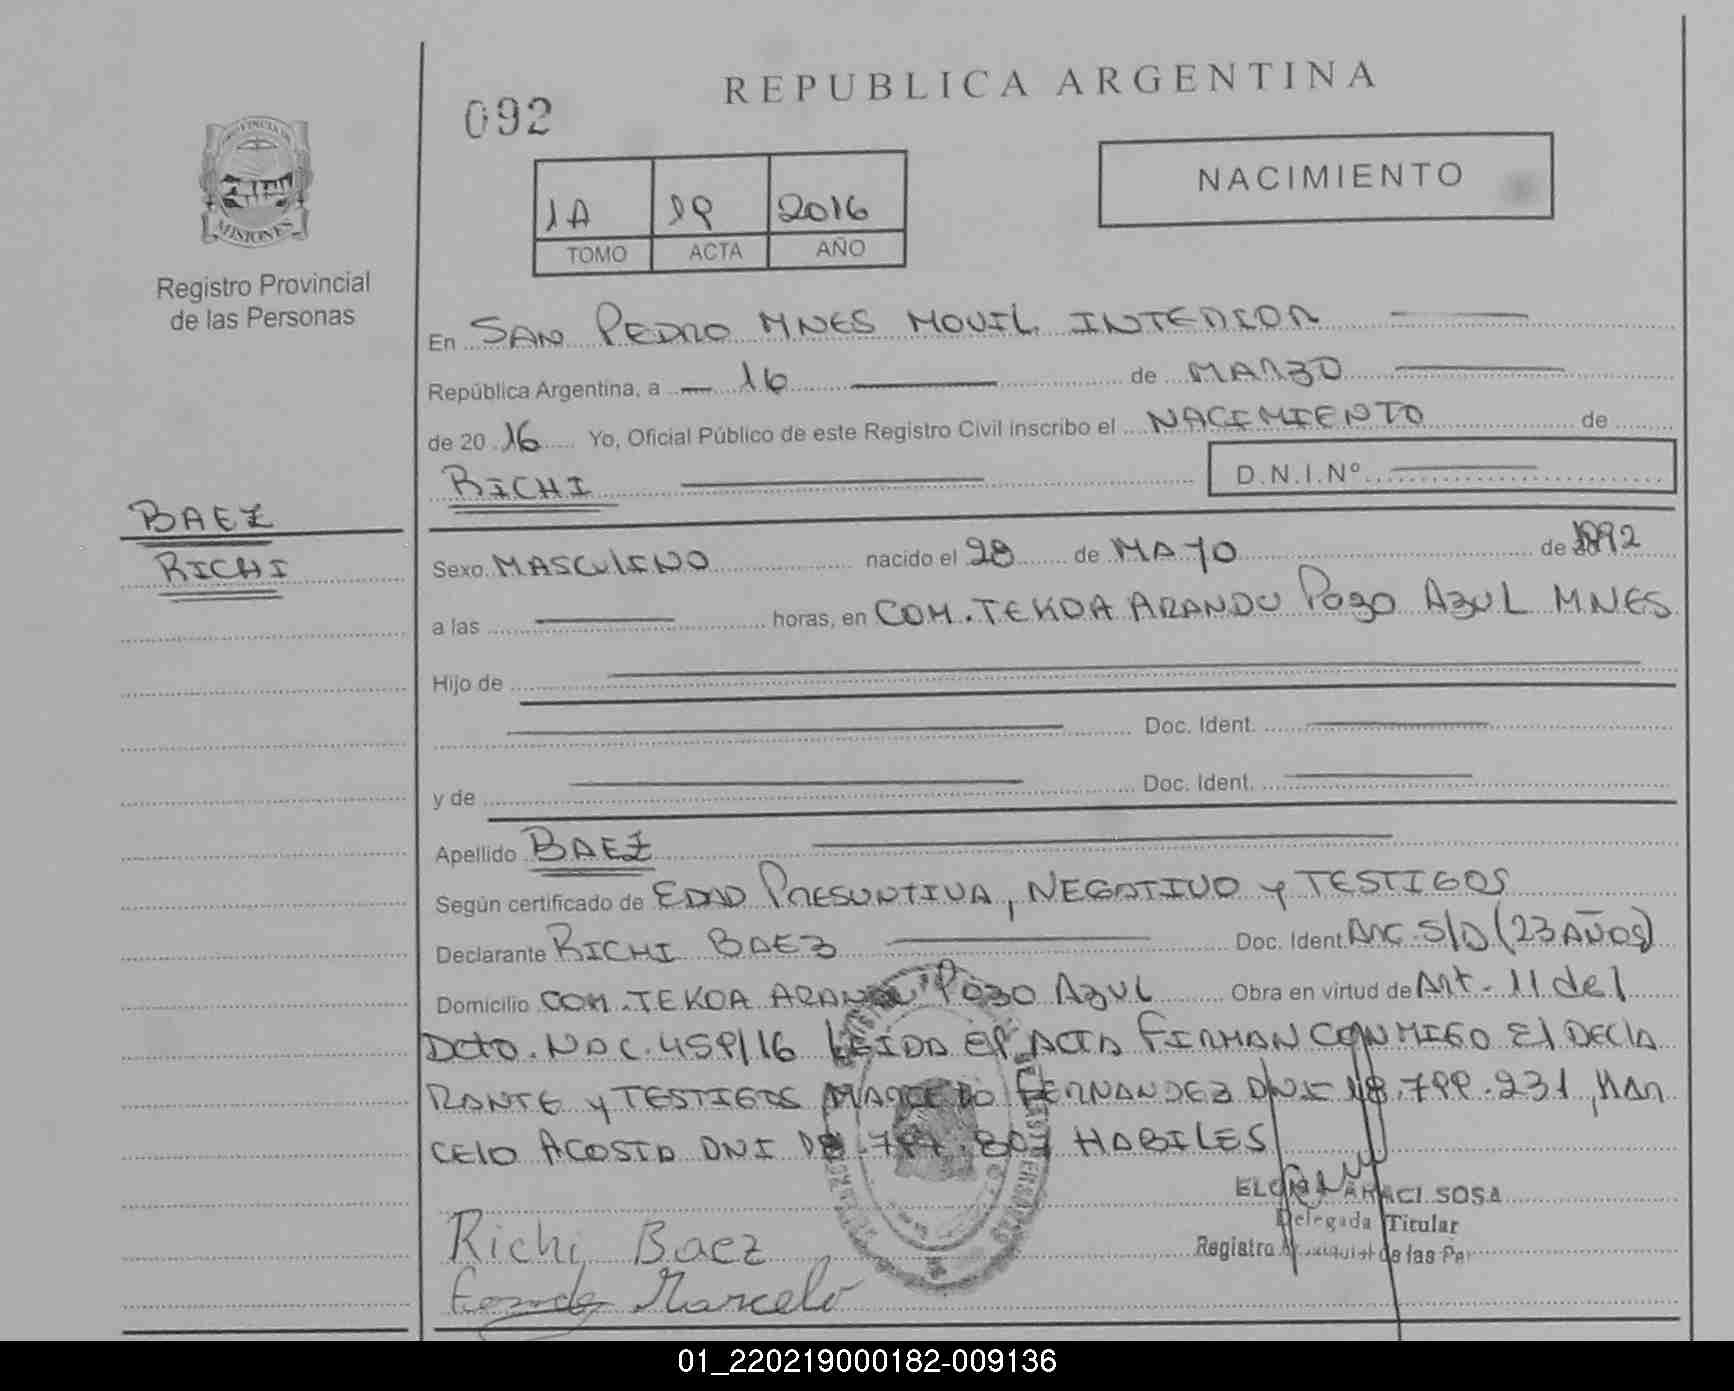 REPUBLICA ARGENTINA
092
NACIMIENTO
1A 19 2016
TOMO ACTA AÑO
PROVINCIA DE
MISIONES
Registro Provincial
de las Personas
En SAN PEDRO MNES MOVIL INTERIOR
República Argentina, a 16 de MARZO
de 20 16 Yo, Oficial Público de este Registro Civil inscribo el NACIMIENTO de
RICHI D.N.I.Nº
BAEZ
RICHI
Sexo MASCULINO nacido el 28 de MAYO de 1992
a las horas, en COM. TEKOA ARANDU POZO AZUL MNES
Hijo de
Doc. Ident.
y de Doc. Ident.
Apellido BAEZ
Según certificado de EDAD PRESUNTIVA, NEGATIVO y TESTIGOS
Declarante RICHI BAEZ Doc. Ident. ARG. S/D (23 AÑOS)
Domicilio COM. TEKOA ARANDU POZO AZUL Obra en virtud de Art. 11 del
Dcto. NAC. 459/16 LEIDA El ACTA FIRMAN CONMIGO El DECLA
RANTE y TESTIGOS FERNANDEZ DNI 18.799.231, MAR
CELO ACOSTA DNI HABILES
ARACI SOSA
Delegada Titular
Registro de las Per
Richi Baez
Marcelo
01_220219000182-009136